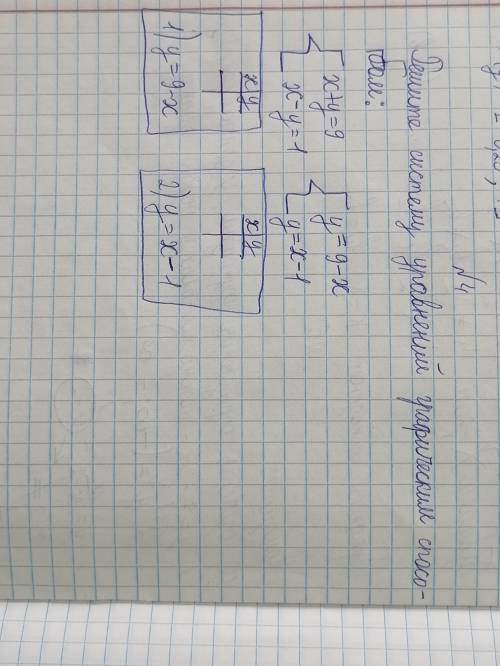 №4
Решите систему уравнений графическим спосо-
бом:
{ x+y=9 { y=9-x
x-y=1 y=x-1
x y x y
1) y=9-x 2) y=x-1